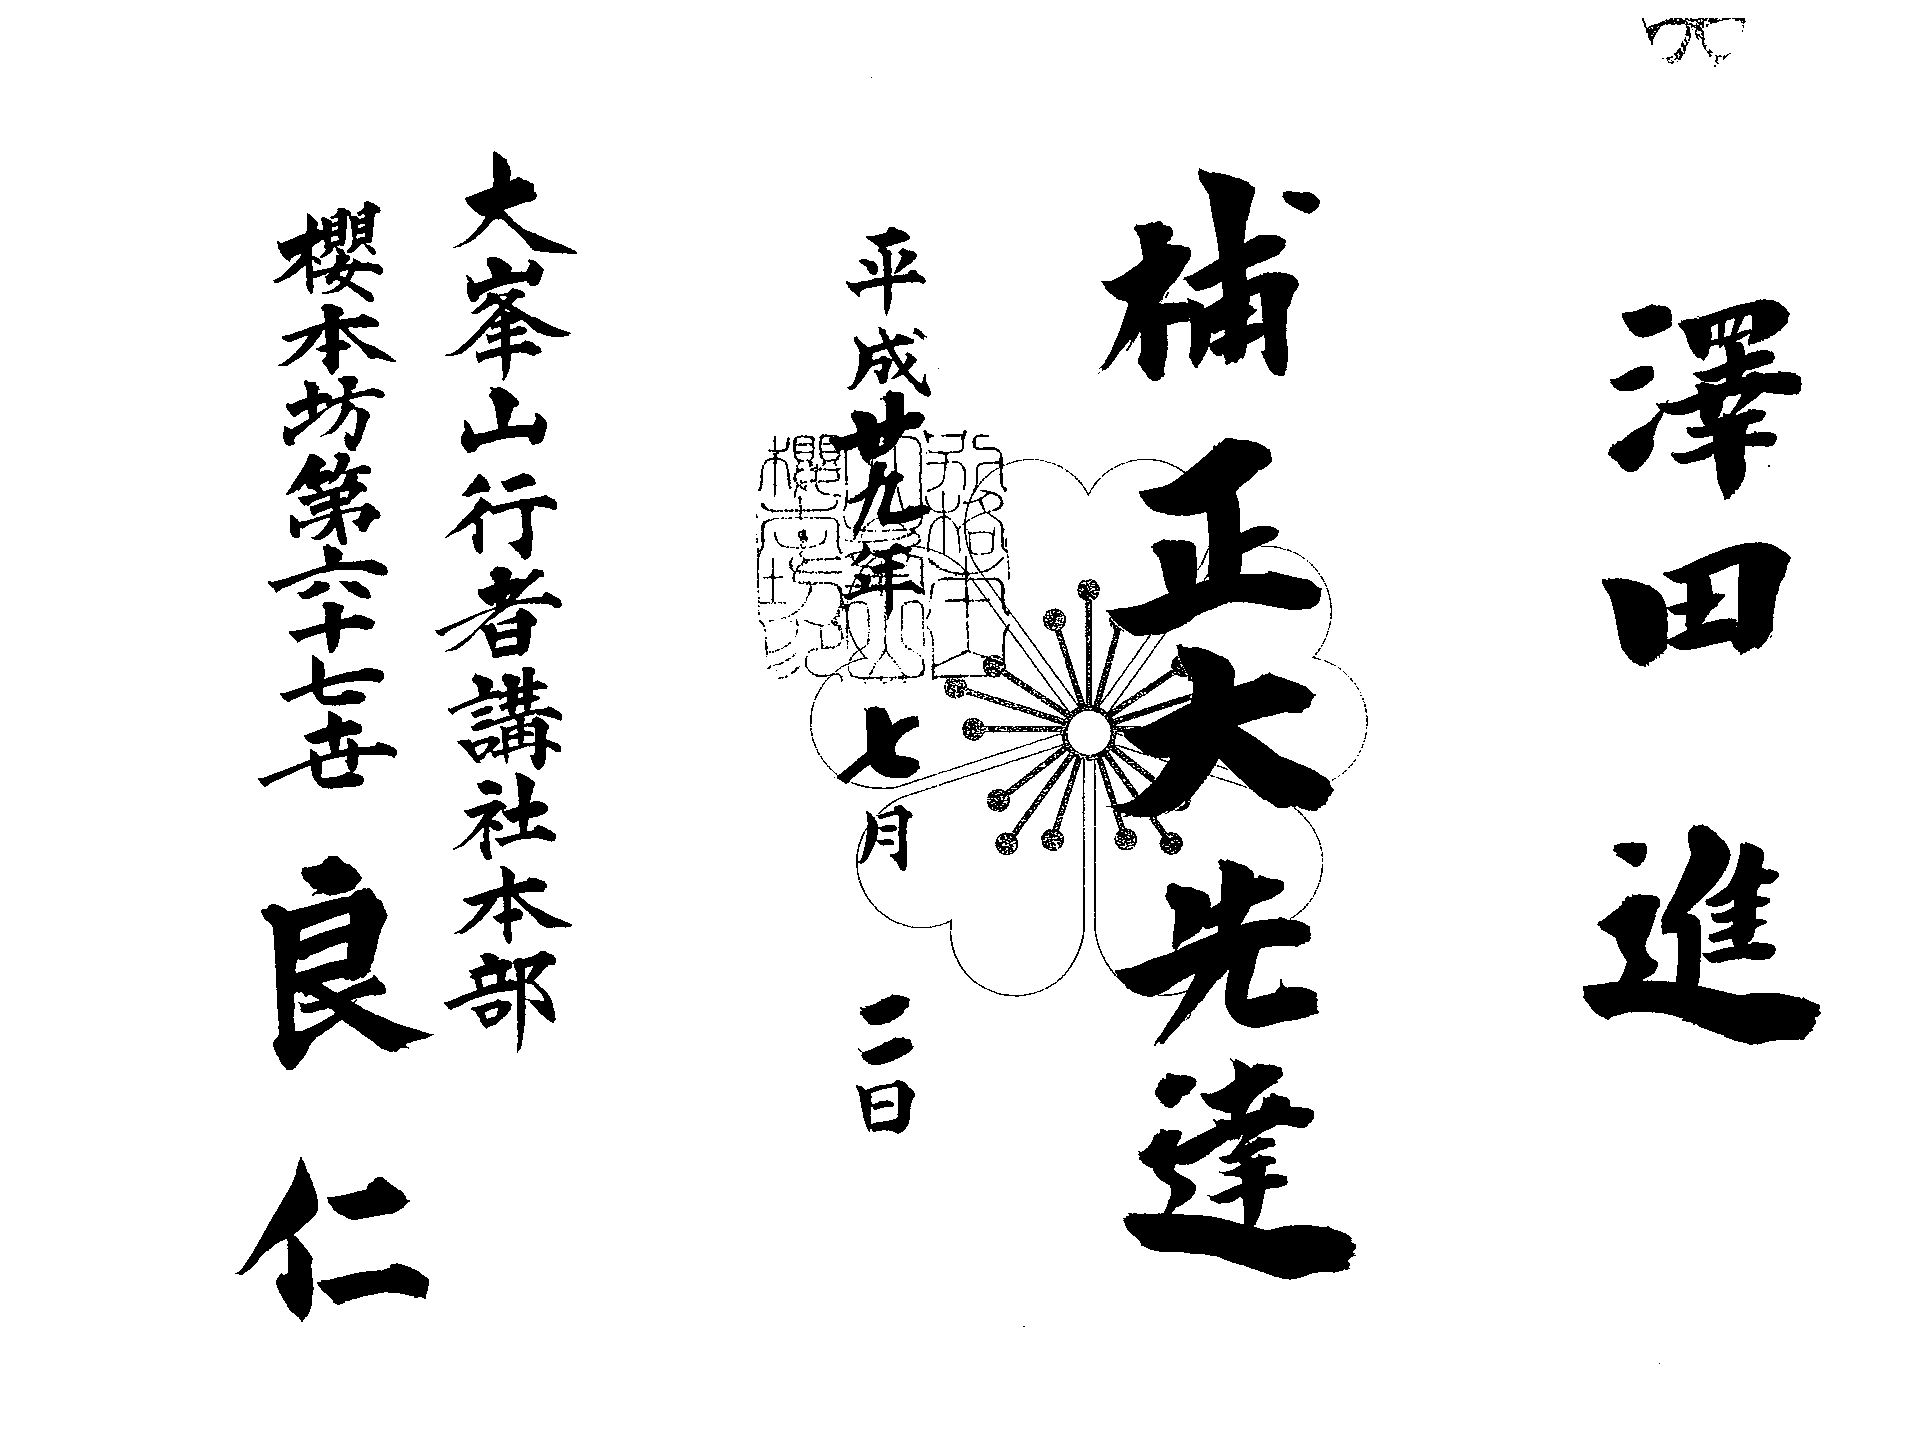 澤田 進
補正大先達
平成廿九年七月 二日
大峯山行者講社本部
櫻本坊第六十七世 良仁